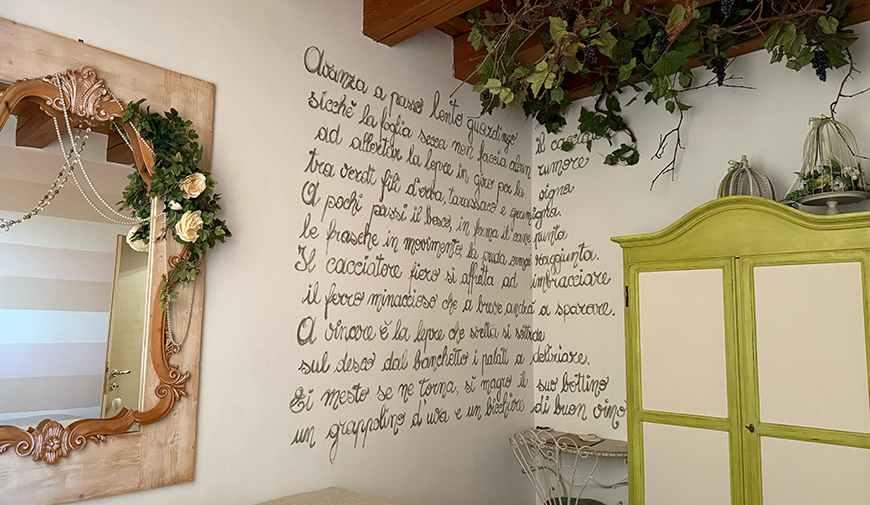 Avanza a passo lento guardingo il caccia
sicchè la foglia secca non faccia alcun rumore
ad allertar la lepre in giro per la vigna
tra verdi fili d'erba, tarassaco e gramigna.
A pochi passi il bosco, in ferma il cane punta
le frasche in movimento, la preda ormai raggiunta.
Il cacciatore fiero si affretta ad imbracciare
il ferro minaccioso che a breve andrà a sparare.
A vincere è la lepre che svelta si sottrae
sul desco dal banchetto i palati a deliziare.
Ei mesto se ne torna, si magro il suo bottino
un grappolino d'uva e un bicchiere di buon vino